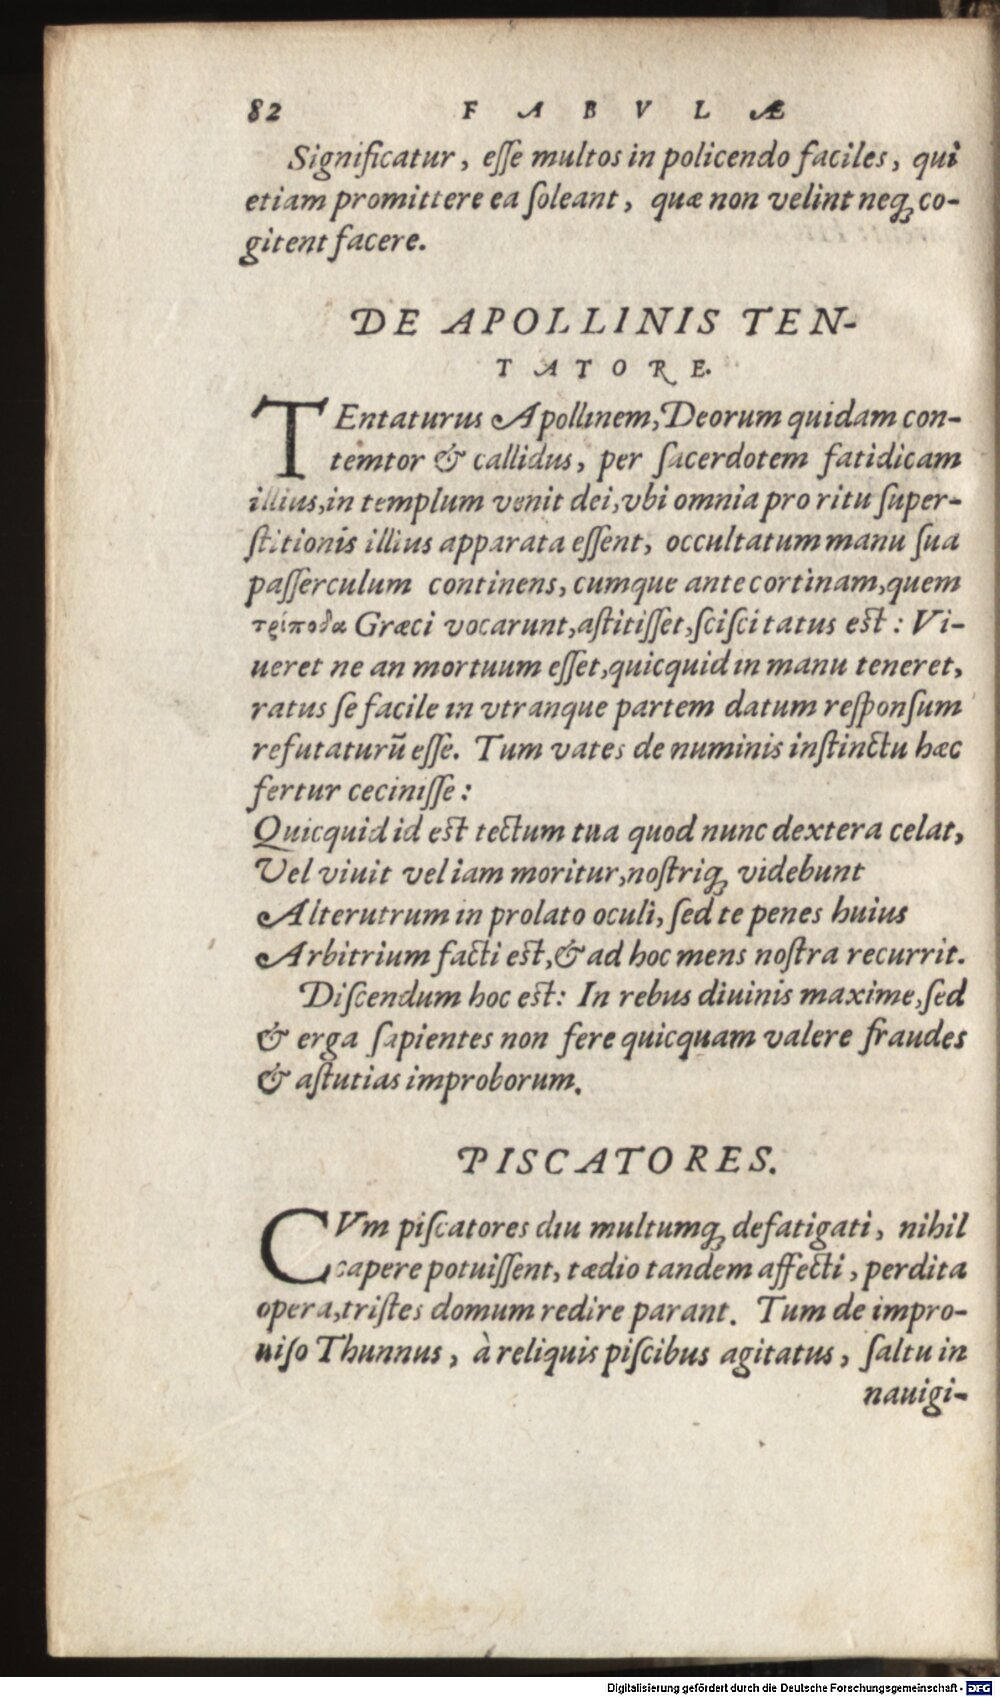 82 FABVLÆ
Significatur, eſſe multos in policendo faciles, qui
etiam promittere ea ſoleant, quæ non velint neq; co-
gitent facere.
DE APOLLINIS TEN-
TATORE.
TEntaturus Apollinem, Deorum quidam con-
temtor & callidus, per ſacerdotem fatidicam
illius, in templum venit dei, vbi omnia pro ritu ſuper-
ſtitionis illius apparata eſſent, occultatum manu ſua
paſſerculum continens, cumque ante cortinam, quem
τρίποδα Græci vocarunt, aſtitiſſet, ſciſcitatus eſt: Vi-
ueret ne an mortuum eſſet, quicquid in manu teneret,
ratus ſe facile in vtranque partem datum reſponſum
refutaturũ eſſe. Tum vates de numinis inſtinctu hæc
fertur ceciniſſe:
Quicquid id eſt tectum tua quod nunc dextera celat,
Vel viuit vel iam moritur, noſtriq; videbunt
Alterutrum in prolato oculi, ſed te penes huius
Arbitrium facti eſt, & ad hoc mens noſtra recurrit.
Diſcendum hoc eſt: In rebus diuinis maxime, ſed
& erga ſapientes non fere quicquam valere fraudes
& aſtutias improborum.
PISCATORES.
CVm piſcatores diu multumq; defatigati, nihil
capere potuiſſent, tædio tandem affecti, perdita
opera, triſtes domum redire parant. Tum de impro-
uiſo Thunnus, à reliquis piſcibus agitatus, ſaltu in
nauigi-
Digitalisierung gefördert durch die Deutsche Forschungsgemeinschaft - DFG